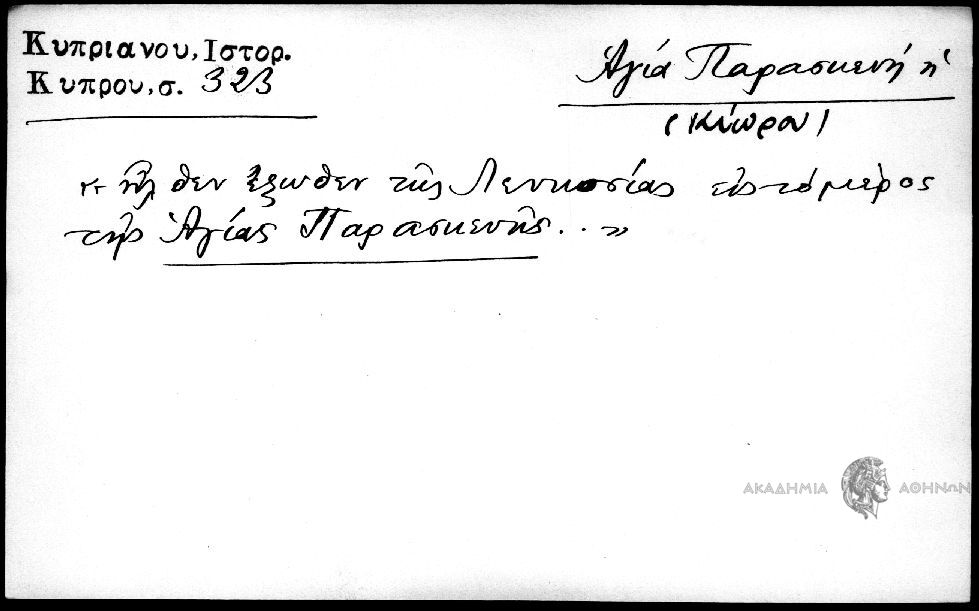 Κυπριανου, Ιστορ.
Κυπρου, σ. 323
Ἁγία Παρασκευή ἡ
(Κύπρου)
« ἦλθεν ἔξωθεν τῆς Λευκοσίας εἰς τό μέρος
τῆς Ἁγίας Παρασκευῆς... »
ΑΚΑΔΗΜΙΑ ΑΘΗΝΩΝ